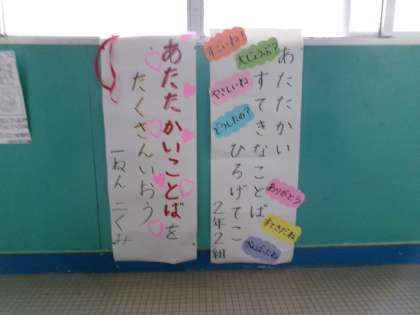 すごいね!
大じょうぶ?
やさしいね
どうしたの?
あたたかい
すてきなことば
ひろげてこ
2年2組
ありがとう
すてきだね
あたたかいことばを
たくさんいおう
一ねん二くみ